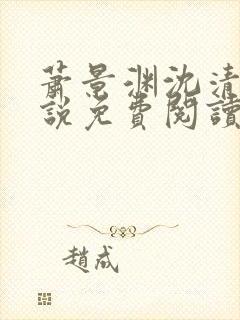 蕭景渊沈清
說免費閱讀
趙成